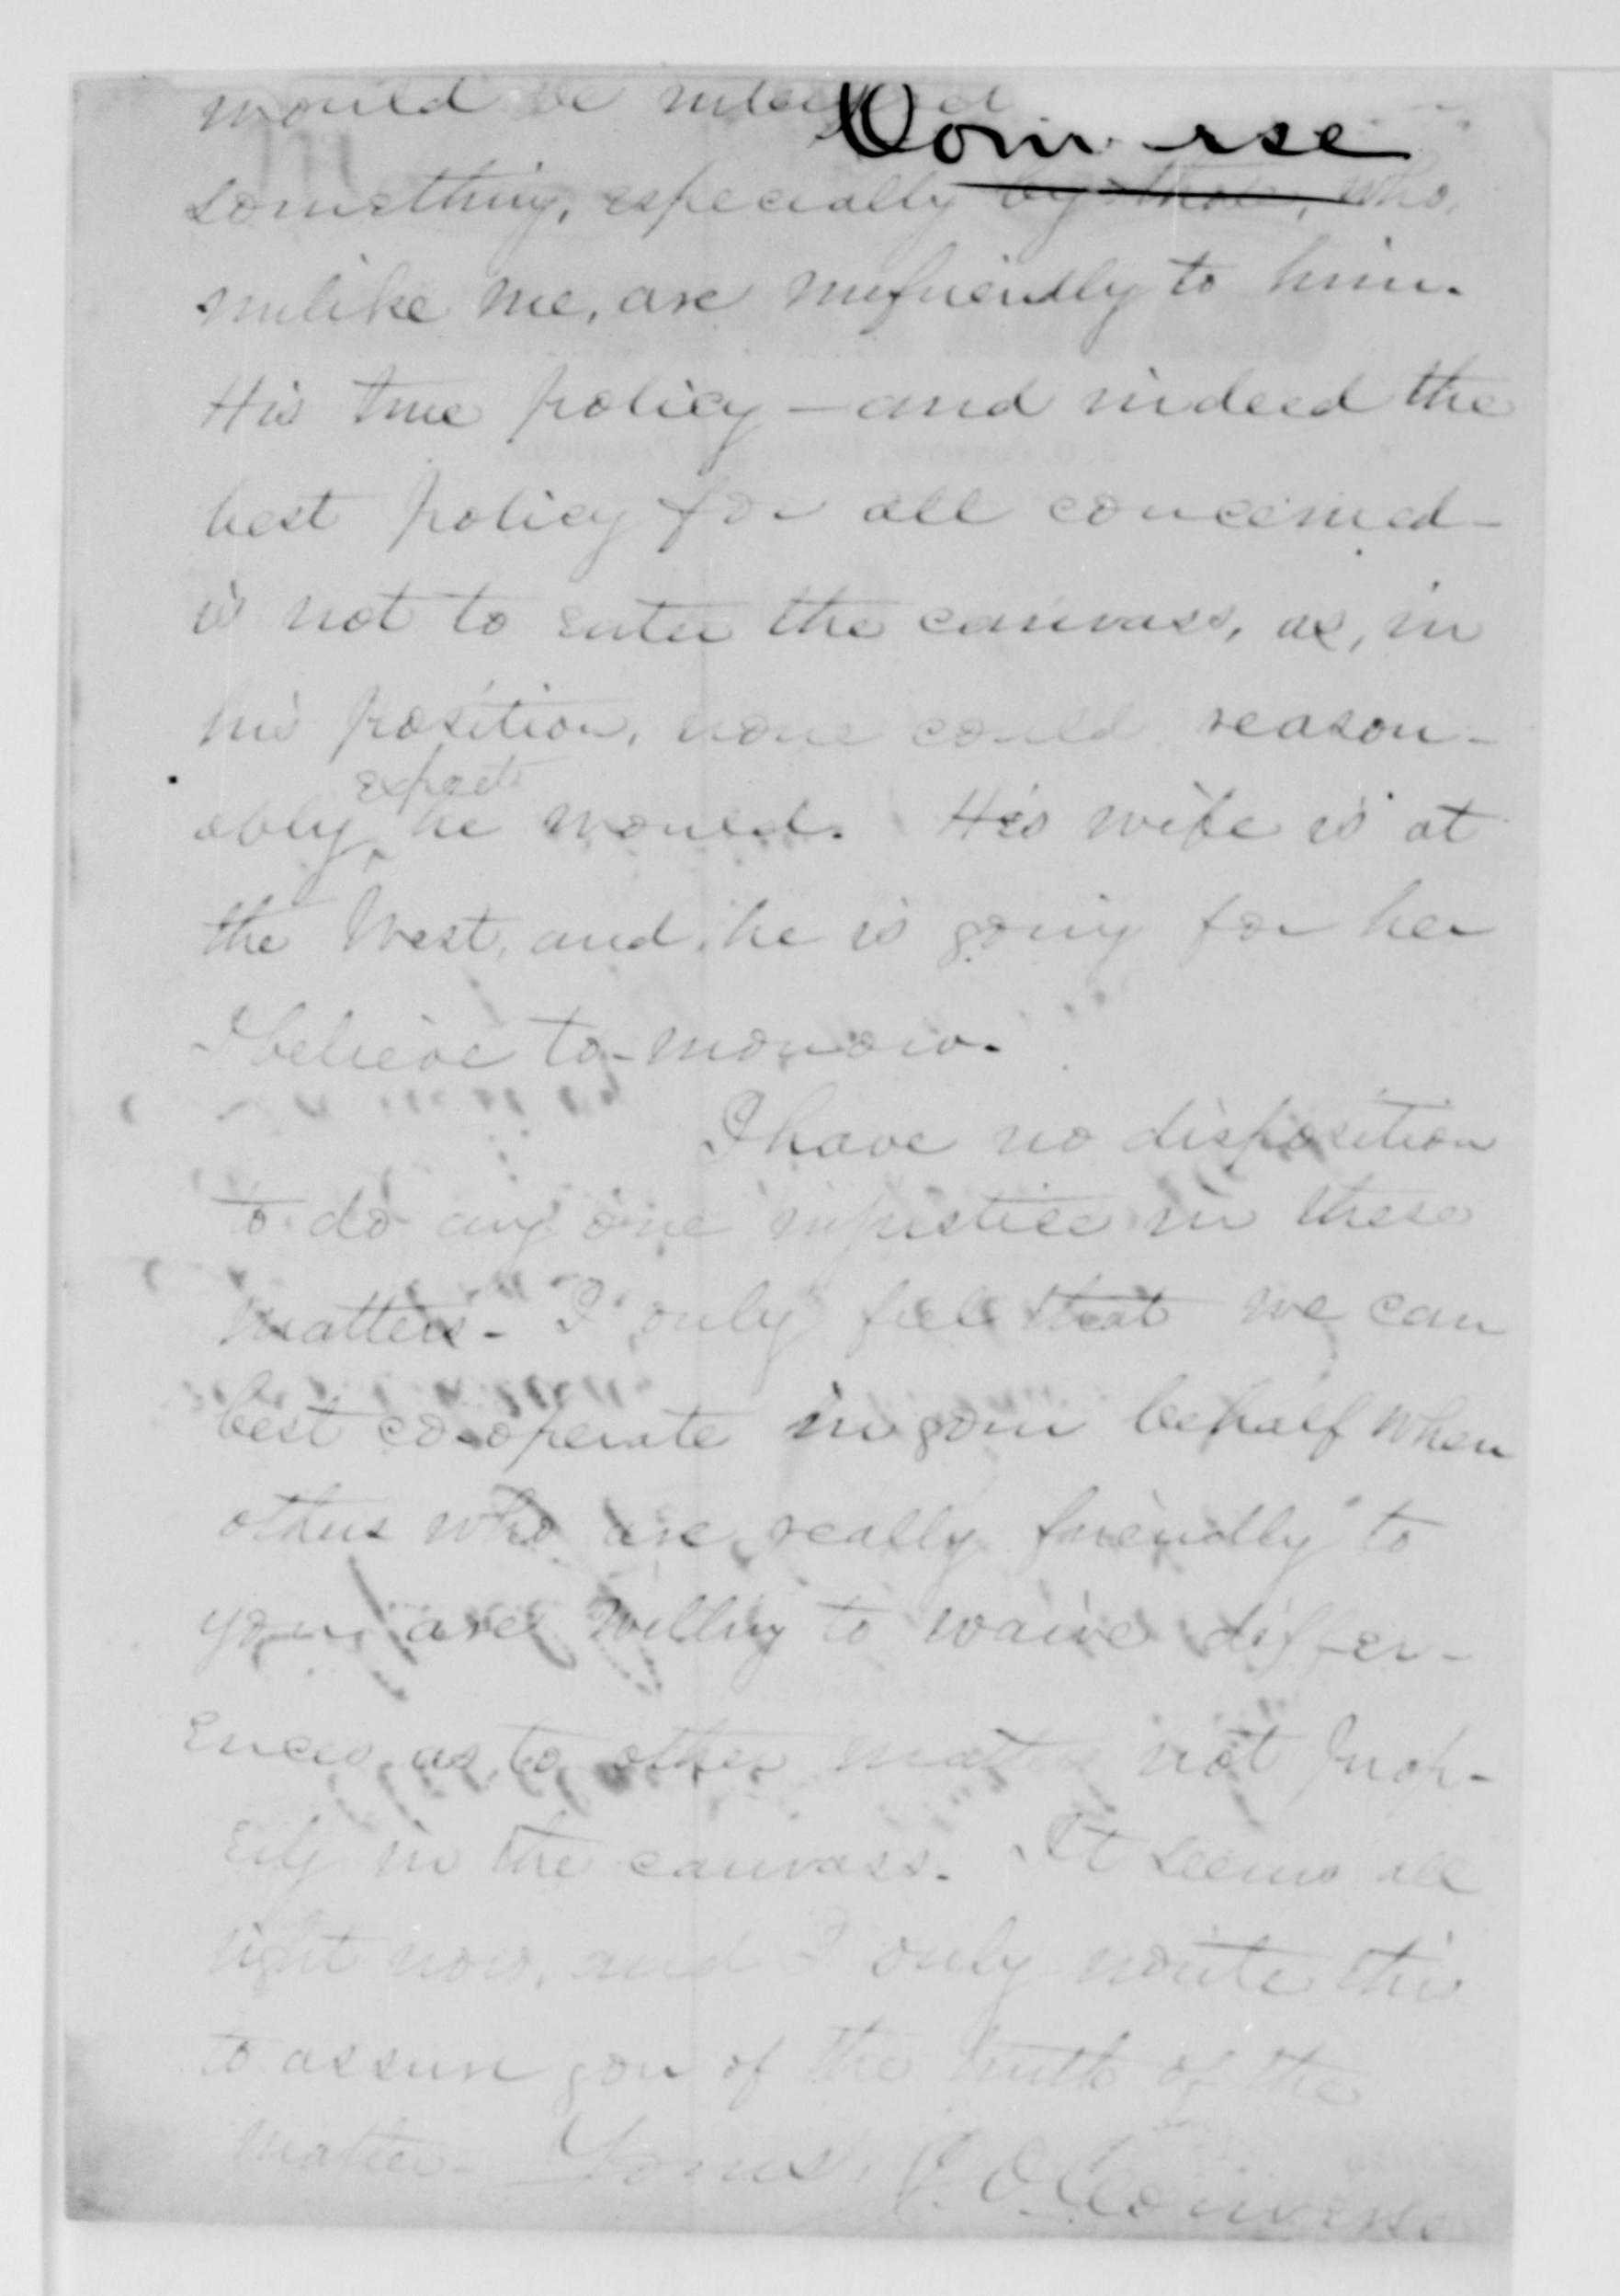 would be
Converse
something, especially by those, who,
unlike me, are unfriendly to him.
His true policy — and indeed the
best policy for all concerned —
is not to enter the canvass, as, in
his position, none could reason-
expect
ably he would. His wife is at
the West, and he is going for her
I believe to-morrow.
I have no disposition
to do any one injustice in these
matters - I only feel that we can
best co-operate in your behalf when
others who are really friendly to
you, are willing to waive differ-
ences as to other matters not prop-
erly in the canvass. It seems all
right now, and I only write this
to assure you of the truth of the
matter - Yours, J. O. Converse